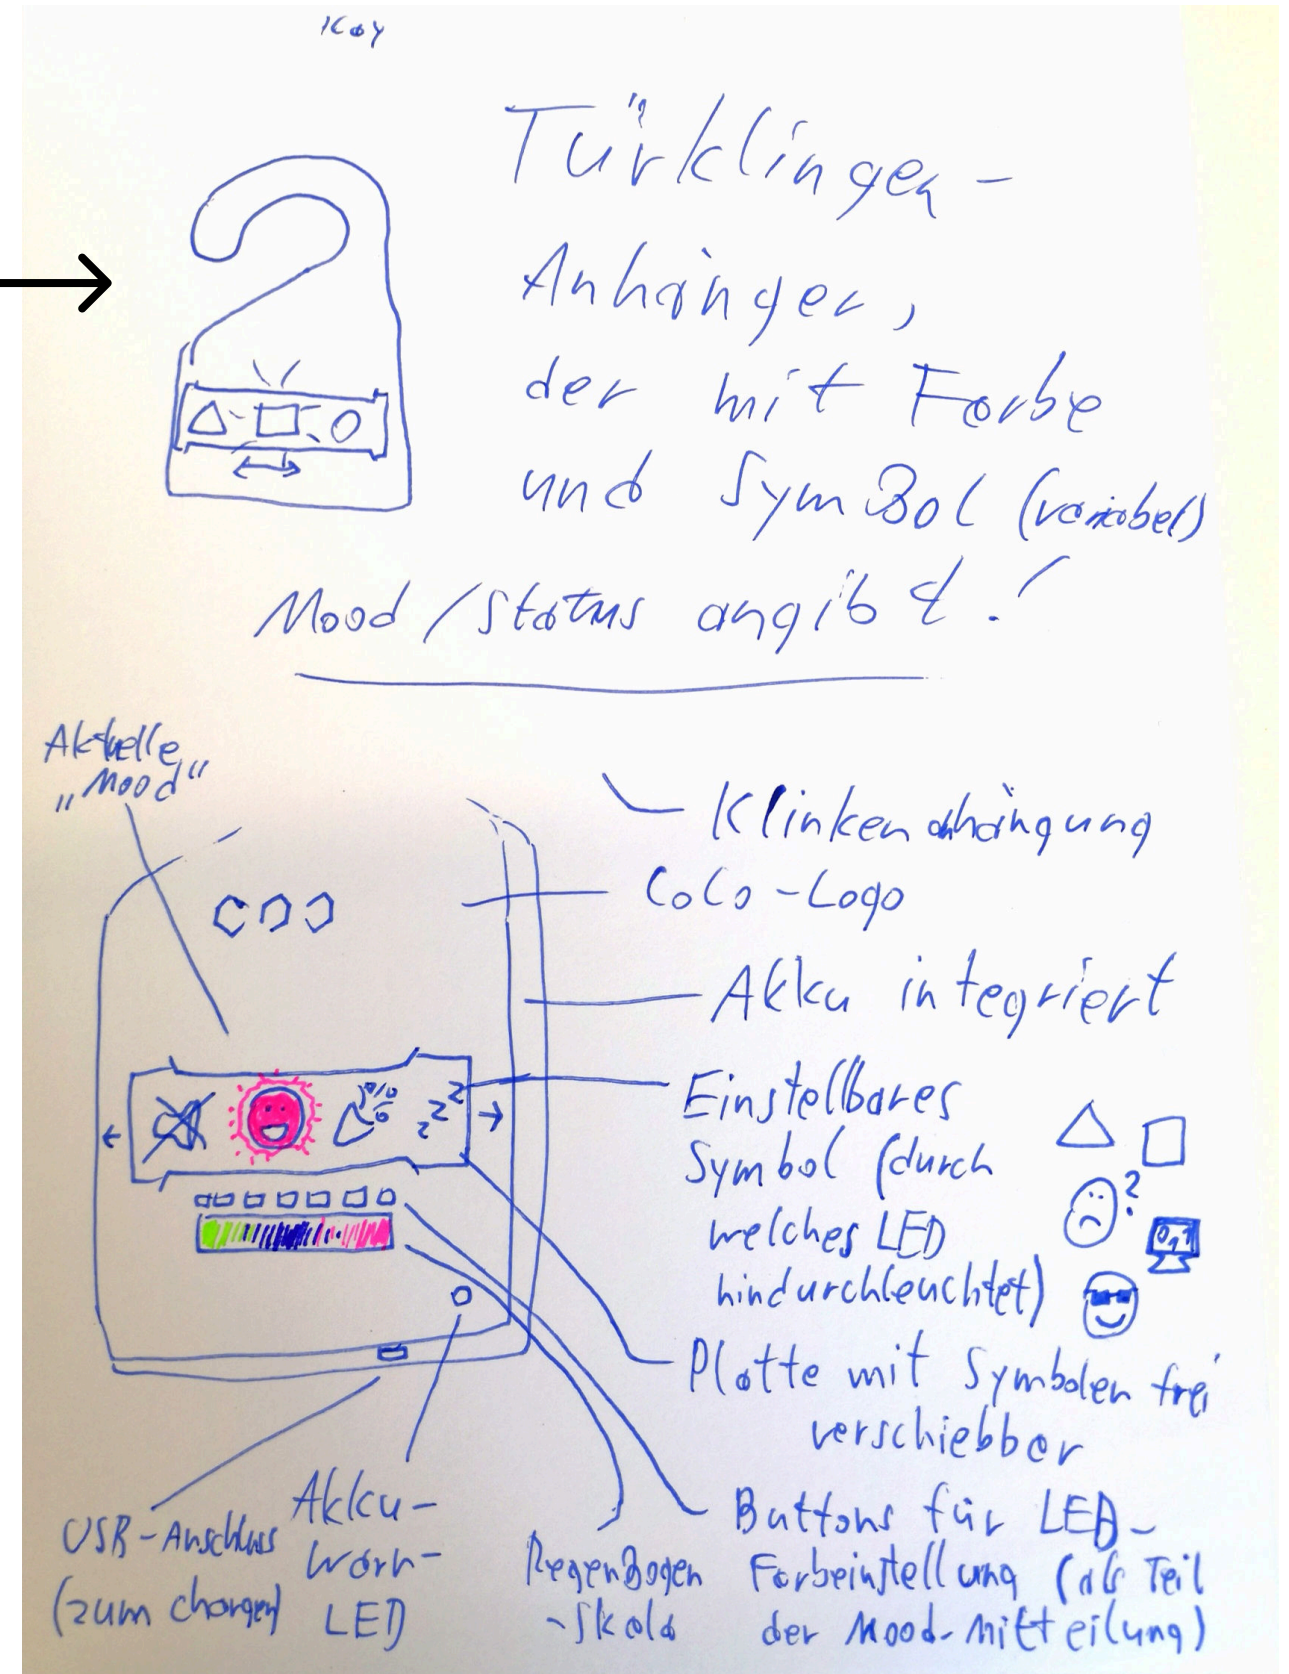 Kay
Türklingen-
Anhänger,
der mit Farbe
und SymBol (variabel)
Mood/Status angibt!
Aktuelle
„Mood“
Klinkenanhängung
CoCo-Logo
Akku integriert
Einstellbares
Symbol (durch
welches LED
hindurchleuchtet)
?
0,1
zzz
Platte mit Symbolen frei
verschiebbar
Buttons für LED-
Farbeinstellung (als Teil
der Mood-Mitteilung)
RegenBogen
-Skala
Akku-
Warn-
LED
USB-Anschluss
(zum chargen)